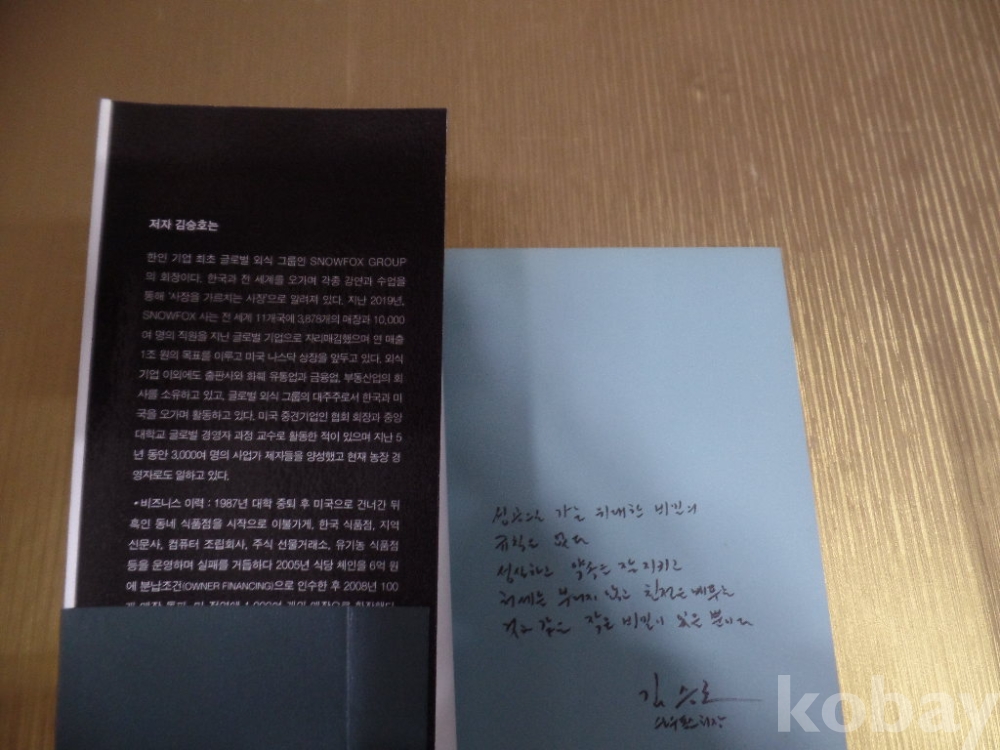 저자 김승호는
한인 기업 최초 글로벌 외식 그룹인 SNOWFOX GROUP
의 회장이다. 한국과 전 세계를 오가며 각종 강연과 수업을
통해 '사장을 가르치는 사장'으로 알려져 있다. 지난 2019년,
SNOWFOX 사는 전 세계 11개국에 3,878개의 매장과 10,000
여 명의 직원을 지닌 글로벌 기업으로 자리매김했으며 연 매출
1조 원의 목표를 이루고 미국 나스닥 상장을 앞두고 있다. 외식
기업 이외에도 출판사와 화훼 유통업과 금융업, 부동산업의 회
사를 소유하고 있고, 글로벌 외식 그룹의 대주주로서 한국과 미
국을 오가며 활동하고 있다. 미국 중견기업인 협회 회장과 중앙
대학교 글로벌 경영자 과정 교수로 활동한 적이 있으며 지난 5
년 동안 3,000여 명의 사업가 제자들을 양성했고 현재 농장 경
영자로도 일하고 있다.
*비즈니스 이력 : 1987년 대학 중퇴 후 미국으로 건너간 뒤
흑인 동네 식품점을 시작으로 이불가게, 한국 식품점, 지역
신문사, 컴퓨터 조립회사, 주식 선물거래소, 유기농 식품점
등을 운영하며 실패를 거듭하다 2005년 식당 체인을 6억 원
에 분납조건(OWNER FINANCING)으로 인수한 후 2008년 100
성공으로 가는 위대한 비밀의
규칙은 없다
약속은 잘 지키고
허세는 부리지 않고 친절은 베푸는
것과 같은 작은 비밀이 있을 뿐이다
김승호
스노우폭스 회장
kobay